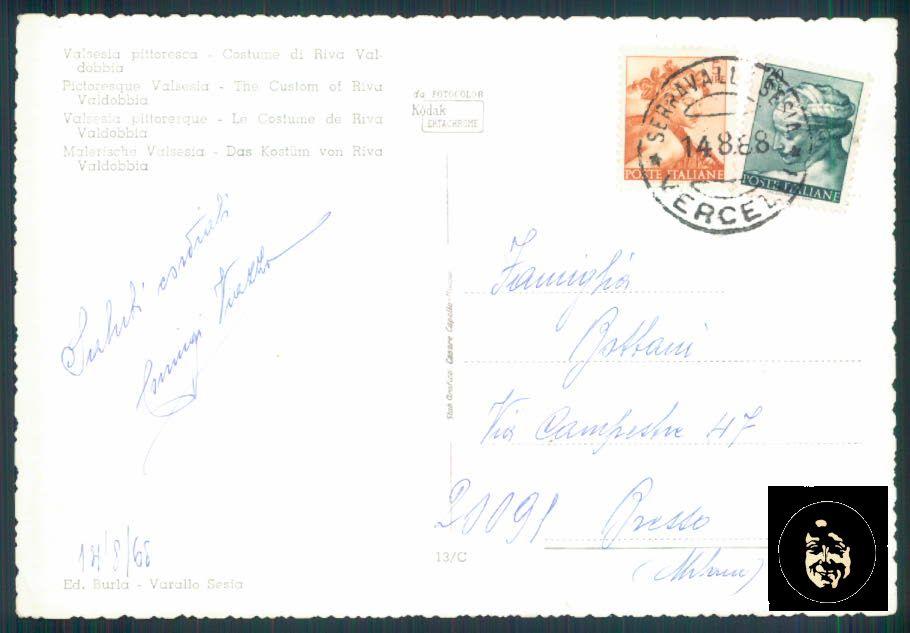 Valsesia pittoresca - Costume di Riva Val-
dobbia
Picturesque Valsesia - The Custom of Riva
Valdobbia
Valsesia pittoresque - Le Costume de Riva
Valdobbia
Malerische Valsesia - Das Kostüm von Riva
Valdobbia
da FOTOCOLOR
Kodak
EKTACHROME
SERRAVALLE SESIA
14.8.68
VERCEL
POSTE ITALIANE
20
POSTE ITALIANE
Saluti cordiali
Luigi
Famiglia
Bottani
Via Campestre 47
20091 Bresso
(Milano)
14/8/68
13/C
Ed. Burla - Varallo Sesia